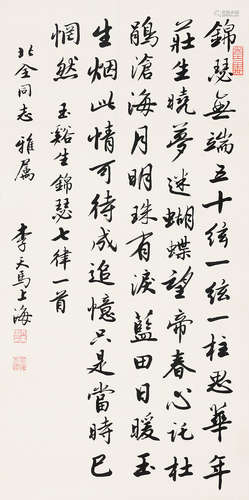 錦瑟無端五十弦一弦一柱思華年
莊生曉夢迷蝴蝶望帝春心託杜
鵑滄海月明珠有淚藍田日暖玉
生烟此情可待成追憶只是當時已
惘然 玉谿生錦瑟七律一首
北全同志雅屬
李天馬上海